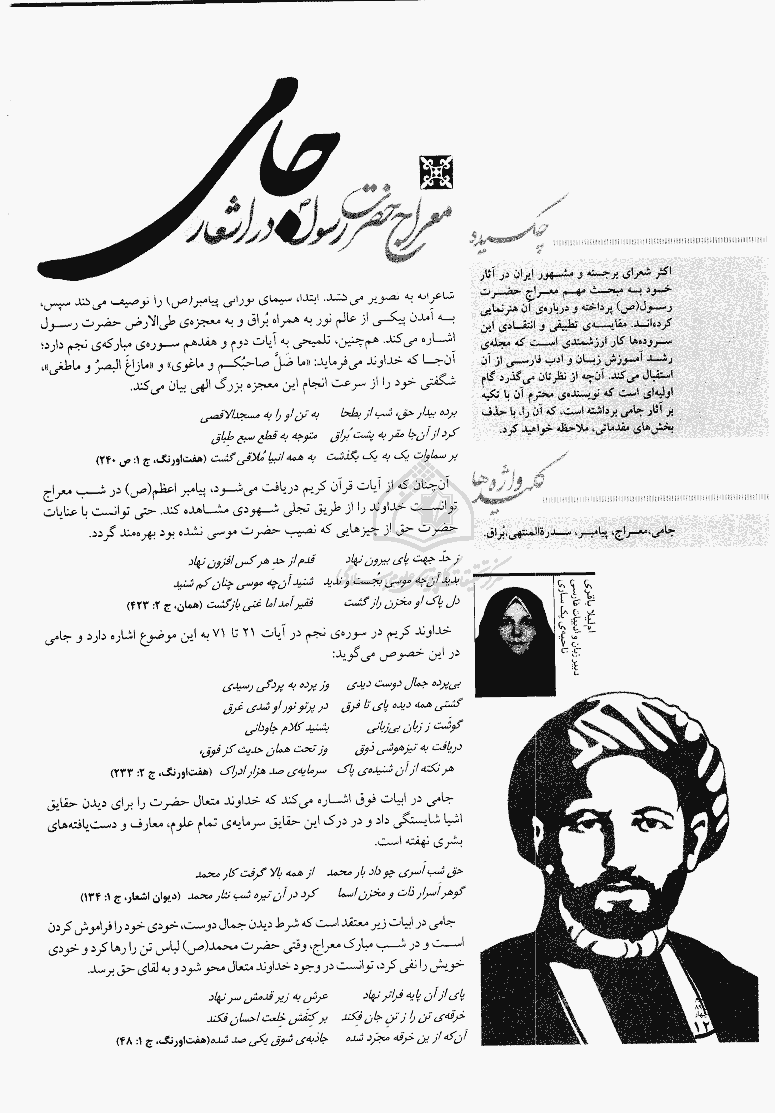 جامی
معراج حضرت رسول در اشعار
چکیده
اکثر شعرای برجسته و مشهور ایران در آثار
خود به مبحث مهم معراج حضرت
رسول(ص) پرداخته و درباره‌ی آن هنرنمایی
کرده‌اند. مقایسه‌ی تطبیقی و انتقادی این
سروده‌ها کار ارزشمندی است که مجله‌ی
رشد آموزش زبان و ادب فارسی از آن
استقبال می‌کند. آن‌چه از نظرتان می‌گذرد گام
اولیه‌ای است که نویسنده‌ی محترم آن با تکیه
بر آثار جامی برداشته است، که آن را، با حذف
بخش‌های مقدماتی، ملاحظه خواهید کرد.
کلید واژه‌ها
جامی، معراج، پیامبر، سدرة‌المنتهی، بُراق.
ام‌لیلا باقری
دبیر زبان و ادبیات فارسی
ناحیه‌ی یک ساری
شاعرانه به تصویر می‌کشد. ابتدا، سیمای نورانی پیامبر(ص) را توصیف می‌کند سپس،
به آمدن پیکی از عالم نور به همراه بُراق و به معجزه‌ی طی‌الارض حضرت رسول
اشاره می‌کند. هم‌چنین، تلمیحی به آیات دوم و هفدهم سوره‌ی مبارکه‌ی نجم دارد؛
آن‌جا که خداوند می‌فرماید: «ما ضَلَّ صاحبُکم و ماغوی» و «مازاغَ البصرُ و ماطغی»،
شگفتی خود را از سرعت انجام این معجزه بزرگ الهی بیان می‌کند.
برده بیدار حق، شب از بطحا به تن او را به مسجدالاقصی
کرد از آن‌جا مقر به پشت بُراق متوجه به قطع سبع طِباق
بر سماوات یک به یک بگذشت به همه انبیا مُلاقی گشت (هفت‌اورنگ، ج ۱: ص ۲۴۰)
آن‌چنان که از آیات قرآن کریم دریافت می‌شود، پیامبر اعظم(ص) در شب معراج
توانست خداوند را از طریق تجلی شهودی مشاهده کند. حتی توانست با عنایات
حضرت حق از چیزهایی که نصیب حضرت موسی نشده بود بهره‌مند گردد.
ز حدّ جهت پای بیرون نهاد قدم از حد هر کس افزون نهاد
بدید آن‌چه موسی بجُست و ندید شنید آن‌چه موسی چنان کم شنید
دل پاک او مخزن راز گشت فقیر آمد اما غنی بازگشت (همان، ج ۲: ۴۲۳)
خداوند کریم در سوره‌ی نجم در آیات ۲۱ تا ۷۱ به این موضوع اشاره دارد و جامی
در این خصوص می‌گوید:
بی‌پرده جمال دوست دیدی وز پرده به پردگی رسیدی
گشتی همه دیده پای تا فرق در پرتو نور او شدی غرق
گوشَت ز زبان بی‌زبانی بشنید کلام جاودانی
دریافت به تیزهوشی ذوق وز تحت همان حدیث کز فوق،
هر نکته از آن شنیده‌ی پاک سرمایه‌ی صد هزار ادراک (هفت‌اورنگ، ج ۲: ۲۳۳)
جامی در ابیات فوق اشاره می‌کند که خداوند متعال حضرت را برای دیدن حقایق
اشیا شایستگی داد و در درک این حقایق سرمایه‌ی تمام علوم، معارف و دست‌یافته‌های
بشری نهفته است.
حق شب اَسری چو داد بار محمد از همه بالا گرفت کار محمد
گوهر اَسرار ذات و مخزن اسما کرد در آن تیره شب نثار محمد (دیوان اشعار، ج ۱: ۱۳۴)
جامی در ابیات زیر معتقد است که شرط دیدن جمال دوست، خودی خود را فراموش کردن
است و در شب مبارک معراج، وقتی حضرت محمد(ص) لباس تن را رها کرد و خودی
خویش را نفی کرد، توانست در وجود خداوند متعال محو شود و به لقای حق برسد.
پای از آن پایه فراتر نهاد عرش به زیر قدمش سر نهاد
خرقه‌ی تن را ز تنِ جان فکند بر کتفش خلعت احسان فکند
آن‌که از ین خرقه مجرّد شده جاذبه‌ی شوق یکی صد شده (هفت‌اورنگ، ج ۱: ۴۸)
۱۲